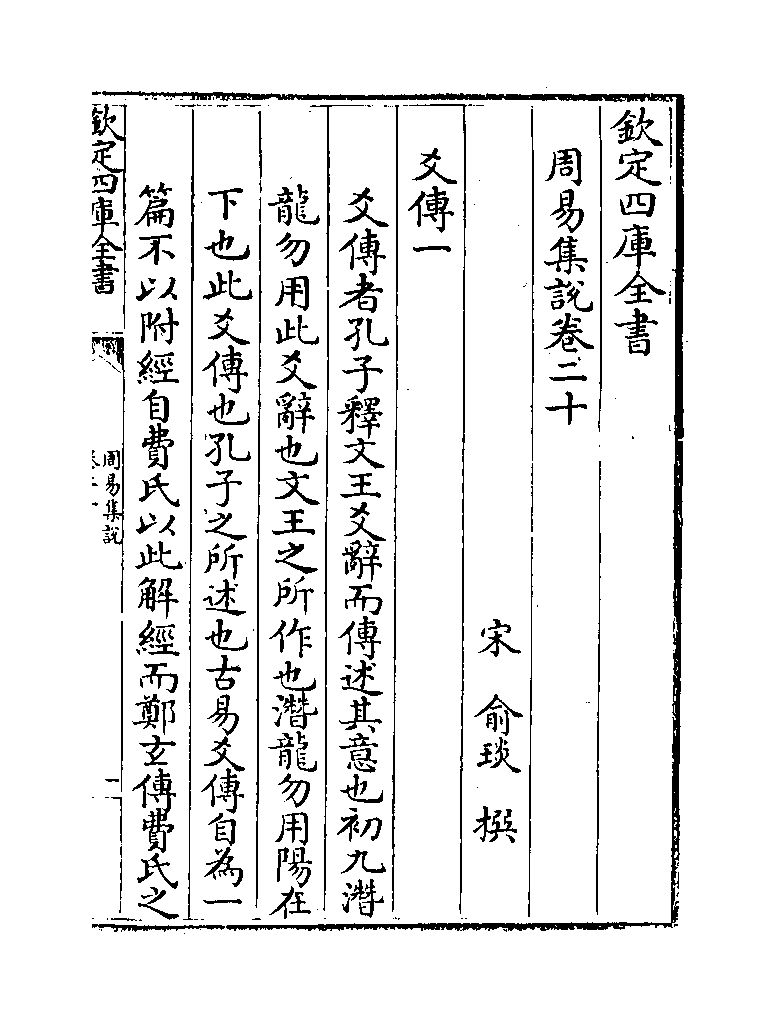 欽定四庫全書
周易集說卷二十
宋　俞琰　撰
爻傳一
爻傳者孔子釋文王爻辭而傳述其意也初九潛
龍勿用此爻辭也文王之所作也潛龍勿用陽在
下也此爻傳也孔子之所述也古易爻傳自為一
篇不以附經自費氏以此解經而鄭玄傳費氏之
欽定四庫全書
周易集說
一